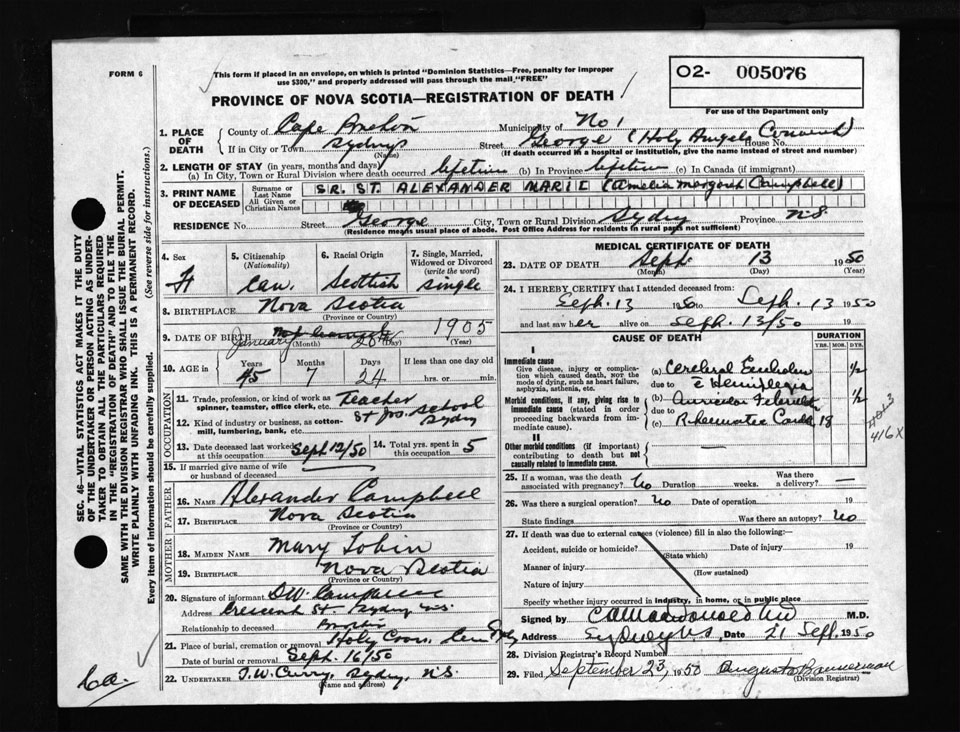 FORM 6
This form if placed in an envelope, on which is printed "Dominion Statistics—Free, penalty for improper
use $300," and properly addressed will pass through the mail "FREE"
O2- 005076
For use of the Department only
PROVINCE OF NOVA SCOTIA—REGISTRATION OF DEATH
1. PLACE OF DEATH
County of Cape Breton Municipality of No 1
If in City or Town Sydney (Name) Street George (Holy Angels Convent) House No.
(If death occurred in a hospital or institution, give the name instead of street and number)
2. LENGTH OF STAY (in years, months and days)
(a) In City, Town or Rural Division where death occurred lifetime (b) In Province lifetime (c) In Canada (if immigrant)
3. PRINT NAME OF DECEASED
Surname or Last Name SR. ST. ALEXANDER MARIE (Amelia Margaret Campbell)
All Given or Christian Names
RESIDENCE No. Street George City, Town or Rural Division Sydney Province N.S.
(Residence means usual place of abode. Post Office Address for residents in rural parts not sufficient)
4. Sex F
5. Citizenship (Nationality) Can.
6. Racial Origin Scottish
7. Single, Married, Widowed or Divorced (write the word) single
8. BIRTHPLACE Nova Scotia
(Province or Country)
9. DATE OF BIRTH January 20 1905
(Month) (Day) (Year)
10. AGE in Years 45 Months 7 Days 24 If less than one day old hrs. or min.
OCCUPATION
11. Trade, profession, or kind of work as spinner, teamster, office clerk, etc. teacher
12. Kind of industry or business, as cotton-mill, lumbering, bank, etc. St Jos. School Sydney
13. Date deceased last worked at this occupation Sept 12/50
14. Total yrs. spent in this occupation 5
15. If married give name of wife or husband of deceased
FATHER
16. NAME Alexander Campbell
17. BIRTHPLACE Nova Scotia
(Province or Country)
MOTHER
18. MAIDEN NAME Mary Tobin
19. BIRTHPLACE Nova Scotia
(Province or Country)
20. Signature of informant D W Campbell
Address Crescent St. Sydney N.S.
Relationship to deceased Brother
21. Place of burial, cremation or removal Holy Cross Cem Sydney
Date of burial or removal Sept. 16/50
22. UNDERTAKER T. W. Curry, Sydney, N.S.
(Name and address)
MEDICAL CERTIFICATE OF DEATH
23. DATE OF DEATH Sept 13 1950
(Month) (Day) (Year)
24. I HEREBY CERTIFY that I attended deceased from:
Sept. 13 1950 to Sept. 13 1950
and last saw her alive on Sept. 13/50
CAUSE OF DEATH
DURATION
YRS. MOS. DYS.
I
Immediate cause
Give disease, injury or complication which caused death, NOT the mode of dying, such as heart failure, asphyxia, asthenia, etc.
(a) Cerebral Embolism 1/2
due to c Hemiplegia
Morbid conditions, if any, giving rise to immediate cause (stated in order proceeding backwards from immediate cause).
(b) Auricular Fibrillat 1/2
due to
(c) Rheumatic Card 18
416X
II
Other morbid conditions (if important) contributing to death but not causally related to immediate cause.
25. If a woman, was the death associated with pregnancy? No Duration weeks. Was there a delivery? —
26. Was there a surgical operation? No Date of operation 19
State findings Was there an autopsy? No
27. If death was due to external causes (violence) fill in also the following:
Accident, suicide or homicide? (State which) Date of injury 19
Manner of injury (How sustained)
Nature of injury
Specify whether injury occurred in industry, in home, or in public place
Signed C A MacDonald MD M.D.
Address Sydney NS Date 21 Sept. 1950
28. Division Registrar's Record Number
29. Filed September 23, 1950 Augusta Bannerman
(Division Registrar)
SEC. 46—VITAL STATISTICS ACT MAKES IT THE DUTY
OF THE UNDERTAKER OR PERSON ACTING AS UNDER-
TAKER TO OBTAIN ALL THE PARTICULARS REQUIRED
IN THE "REGISTRATION OF DEATH" AND TO FILE THE
SAME WITH THE DIVISION REGISTRAR WHO SHALL ISSUE THE BURIAL PERMIT.
WRITE PLAINLY WITH UNFADING INK. THIS IS A PERMANENT RECORD.
Every item of information should be carefully supplied. (See reverse side for instructions.)